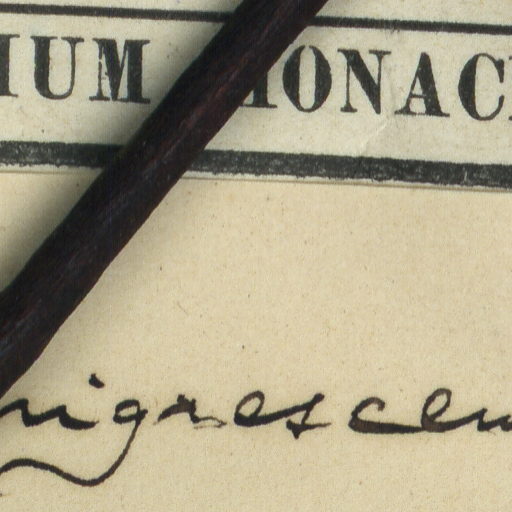 IUM MONAC
nigrescen